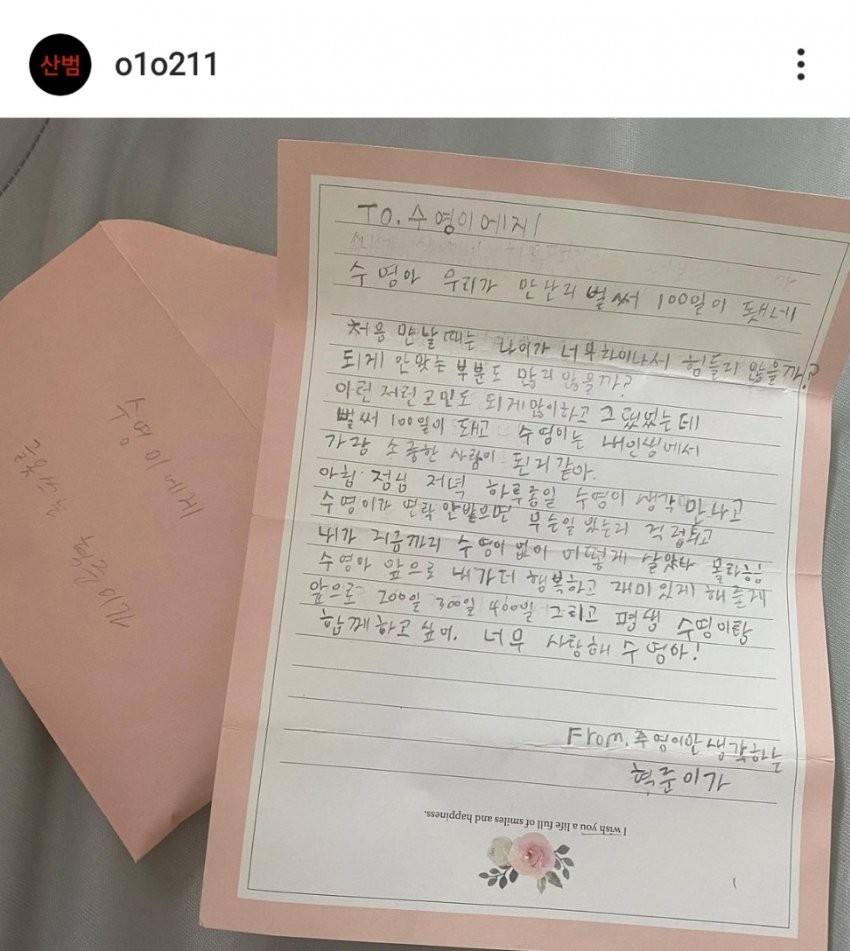 산범 o1o211
To. 수영이에게
수영아 우리가 만난리 벌써 100일이 됐네
처음 만날때는 나이가 너무 차이나서 힘들리 않을까?
되게 안맞는 부분도 많리 않을까?
이런 저런고민도 되게많이하고 그랬었는데
벌써 100일이 돼고 수영이는 내인생에서
가장 소중한 사람이 된리 같아.
아침 점심 저녁 하루종일 수영이 생각 만나고
수영이가 연락 안받으면 무슨일 있는리 걱정되고
내가 지금까리 수영이 없이 어떻게 살았나 몰라
수영아 앞으로 내가더 행복하고 재미있게 해줄게
앞으로 200일 300일 400일 그리고 평생 수영이랑
함께하고 싶어. 너무 사랑해 수영아!
From. 수영이만 생각하는
혁준이가
I wish you a life full of smiles and happiness.
수영이에게
혁준이가